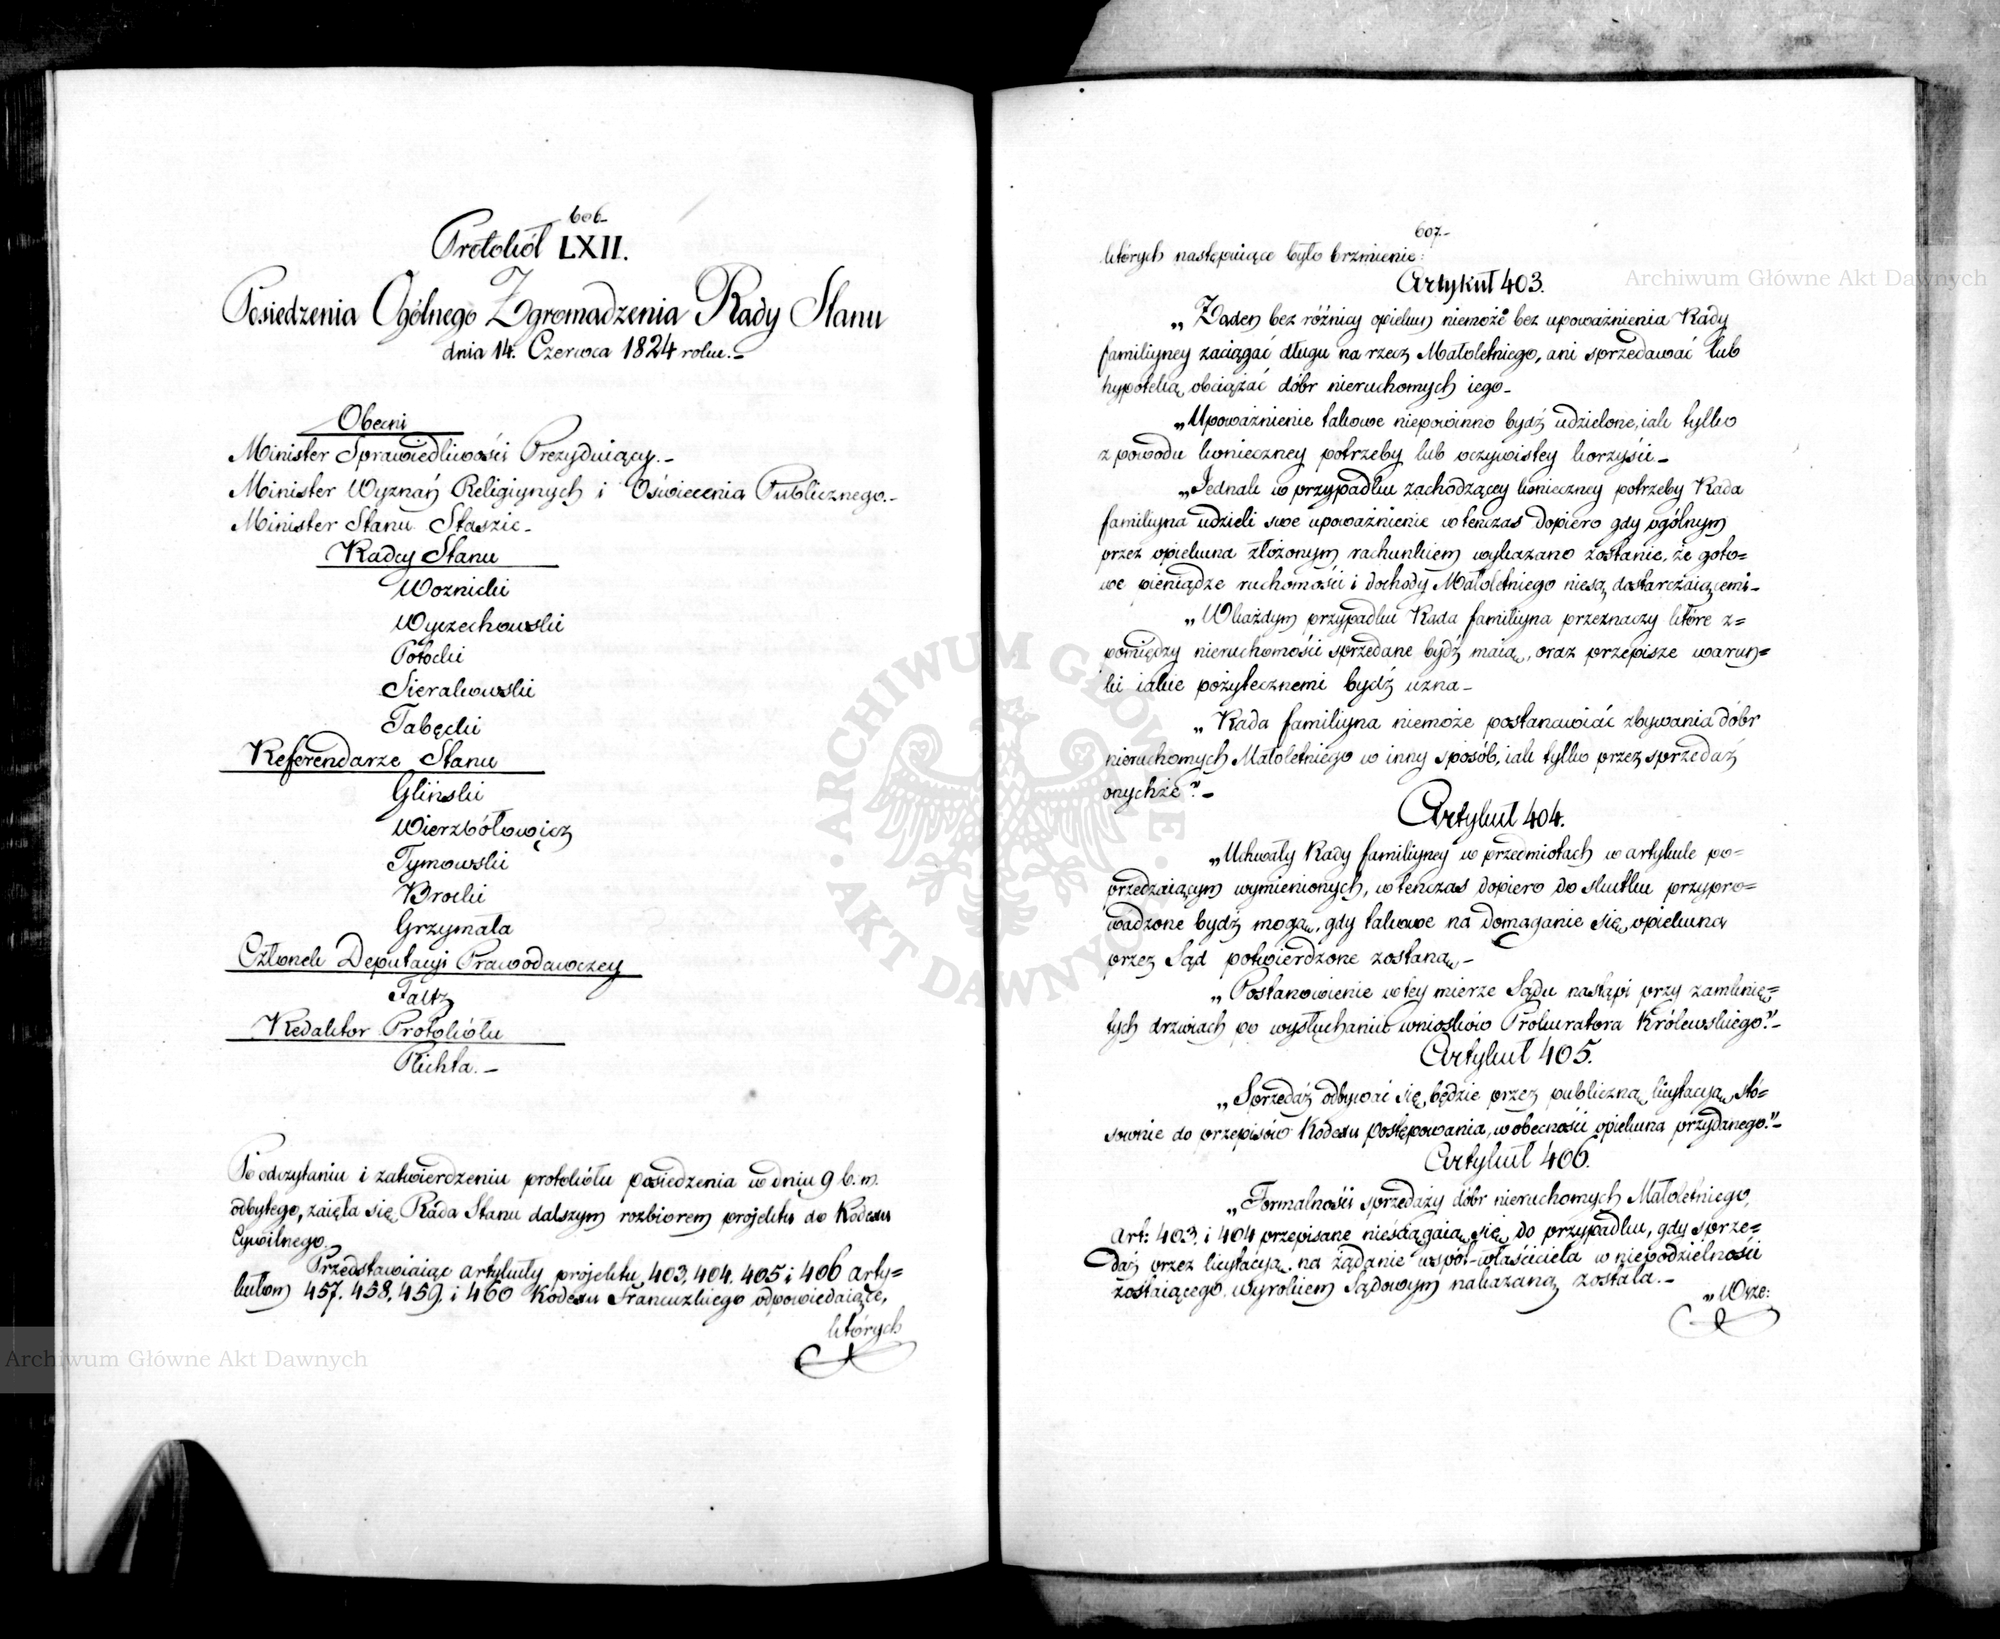 606.
Protokół LXII.
Posiedzenia Ogólnego Zgromadzenia Rady Stanu
dnia 14. Czerwca 1824 roku.
Obecni
Minister Sprawiedliwości Prezyduiący.
Minister Wyznań Religiynych i Oświecenia Publicznego.
Minister Stanu Staszic
Radcy Stanu
Woznicki
Wyczechowski
Potocki
Sierakowski
Tabęcki
Referendarze Stanu
Gliński
Wierzbółowicz
Tymowski
Brocki
Grzymała
Członek Deputacyi Prawodawczey
Faltz
Redaktor Protokółu
Plichta.
Po odczytaniu i zatwierdzeniu protokółu posiedzenia w dniu 9 b. m.
odbytego, zaięła się Rada Stanu dalszym rozbiorem projektu do Kodexu
Cywilnego.
Przedstawiaiąc artykuły projektu 403, 404. 405 i 406 arty=
kułom 457. 458, 459. i 460 Kodexu Francuzkiego odpowiedaiące,
których
607.
których następuiące było brzmienie:
Artykuł 403.
„Żaden bez różnicy opiekun niemoże bez upoważnienia Rady
familiyney zaciągać długu na rzecz Małoletniego, ani sprzedawać lub
hypoteką obciążać dóbr nieruchomych iego
„Upoważnienie takowe niepowinno bydź udzielone, iak tylko
z powodu konieczney potrzeby lub oczywistey korzyści
„Jednak w przypadku zachodzącey konieczney potrzeby Rada
familiyna udzieli swe upoważnienie wtenczas dopiero gdy ogólnym
przez opiekuna złożonym rachunkiem wykazano zostanie, że goto=
we pieniądze ruchomości i dochody Małoletniego niesą dostarczaiącemi
„W każdym przypadku Rada familiyna przeznaczy które z=
pomiędzy nieruchomości sprzedane bydź maią, oraz przepisze warun=
ki iakie pożytecznemi bydź uzna
„Rada familiyna niemoże postanowiać zbywania dóbr
nieruchomych Małoletniego w inny sposób, iak tylko przez sprzedaż
onychże"
Artykuł 404.
„Uchwały Rady familiyney w przedmiotach w artykule po=
przedzaiącym wymienionych, wtenczas dopiero do skutku przypro=
wadzone bydź mogą, gdy takowe na domaganie się opiekuna
przez Sąd potwierdzone zostaną,
„Postanowienie w tey mierze Sądu nastąpi przy zamknię=
tych drzwiach po wysłuchaniu wniosków Prokuratora Królewskiego."
Artykuł 405.
„Sprzedaż odbywać się będzie przez publiczną licytacyą, sto=
sownie do przepisów Kodexu postępowania, w obecności opiekuna przydanego."
Artykuł 406.
„Formalności sprzedaży dóbr nieruchomych Małoletniego,
Art: 403. i 404 przepisane nieściągaią się do przypadku, gdy sprze=
daż przez licytacyą na żądanie współ-właściciela w niepodzielności
zostaiącego, wyrokiem Sądowym nakazaną została.
„W
Archiwum Główne Akt Dawnych
Archiwum Główne Akt Dawnych
ARCHIWUM GŁÓWNE AKT DAWNYCH